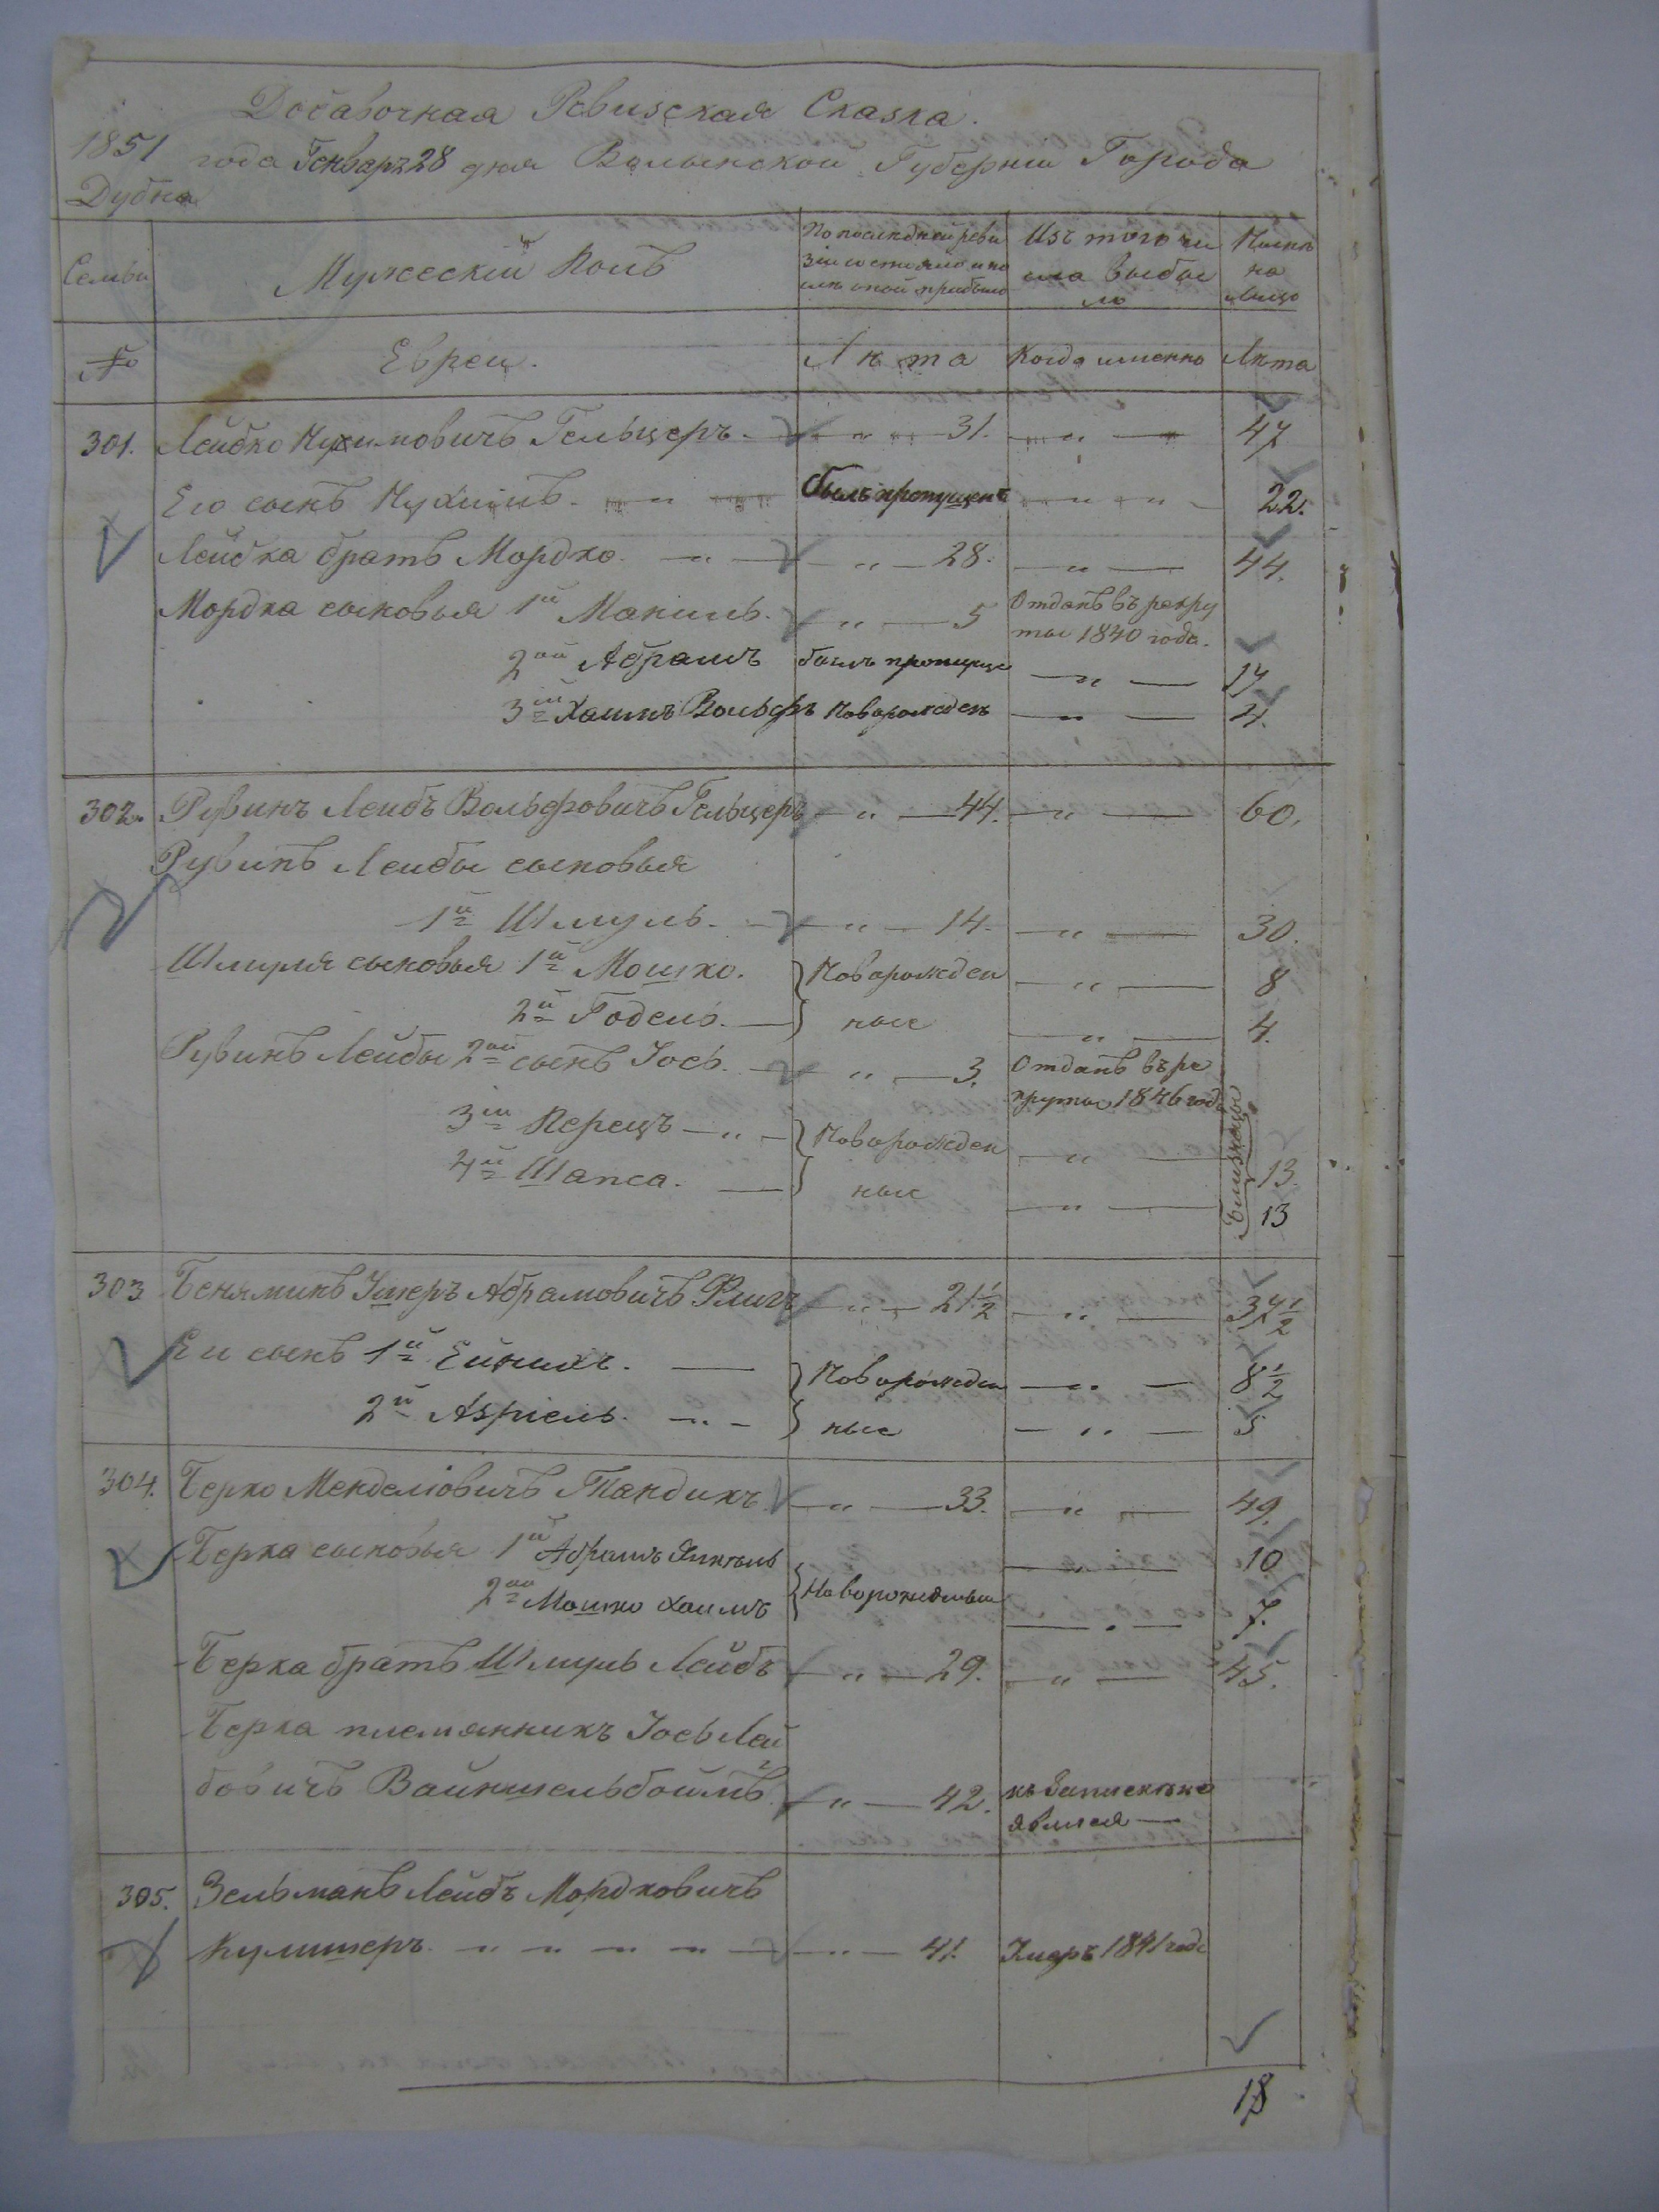 Добавочная Ревизская Сказка.
1851 года Генваря 28 дня Волынской Губернии Города
Дубна
Семьи Мужескій Полъ По последней реви Изъ того чи Ныне
зіи состояло и по сла выбы на
сле оной прибыло ло лицо
№ Евреи. Лета Когда именно Лета
301. Лейбко Нухимовичъ Гельцеръ. — „ — 31. — „ — 47
Его сынъ Нухимъ. — „ — былъ пропущенъ — „ „ — 22.
Лейбка братъ Мордко. — „ — „ — 28. — „ — 44.
Мордка сыновья 1й Манишъ. „ — 5 Отданъ въ рекру
ты 1840 года.
2ой Абрамъ былъ пропуще — „ — 17
3ій Хаимъ Вольфъ Новорожденъ — „ — 4.
302. Рувинъ Лейбъ Вольфовичъ Гельцеръ — „ — 44. — „ — 60.
Рувинъ Лейбы сыновья
1й Шмуль. — „ — 14. — „ — 30.
Шмуля сыновья 1й Мошко. } Новорожден — „ — 8
2й Годель. — } ные — „ — 4.
Рувинъ Лейбы 2ой сынъ Іось. — „ — 3. Отданъ въ ре
круты 1846 года
3ій Перецъ — „ — } Новорожден — „ — близнецы 13.
4й Шапса. — } ные — „ — 13
303 Беняминъ Умеръ Абрамовичъ Флигъ — „ — 21½ — „ — 37½
Еи сынъ 1й Ейнихъ. — } Новорожден — „ — 8½
2й Азріель. — „ — } ные — „ — 5
304. Берко Менделіовичъ Тандихъ. — „ — 33. — „ — 49.
Берка сыновья 1й Абрамъ Янкель — „ — 10
2ой Мошко Хаимъ } Новорожденыи — „ — 7.
Берка братъ Шмуль Лейбъ — „ — 29. — „ — 45.
Берка племянникъ Іось Лей
бовичъ Вайншельбоймъ. — „ — 42. къ Записке не
явился —
305. Зельманъ Лейбъ Мордковичъ
Кулишеръ. — „ — „ — „ — „ — „ — 41. Умеръ 1841 года
18